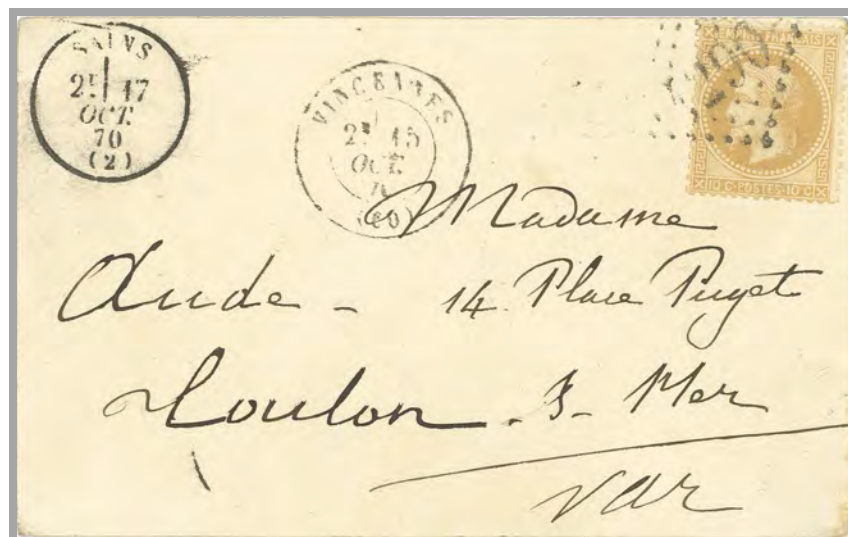 SAINS
2E 17
OCT.
70
(2)
VINCENNES
2E 15
OCT.
(60)
EMPIRE FRANÇAIS
10 C·POSTES·10 C
Madame
Aude - 14 Place Puget
Toulon - s - Mer
Var